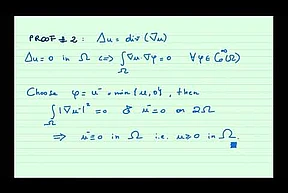 PROOF #2: Δu = div (∇u)
Δu = 0 in Ω <=> ∫_Ω ∇u·∇φ = 0 ∀φ ∈ C₀^∞(Ω)
Choose φ = u⁻ = min{u,0}, then
∫_Ω |∇u⁻|² = 0 & u⁻ = 0 on ∂Ω
⇒ u⁻ ≡ 0 in Ω i.e. u ≥ 0 in Ω.